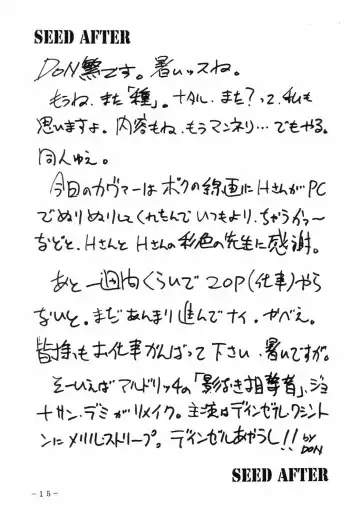 SEED AFTER
DON繁です。暑いッスね。
もうね、また「種」。ナタル、また?って、私も
思いますよ。内容もね、もうマンネリ…でもやる。
同人ゆえ。
今回のカヴァーはボクの線画にHさんがPC
でぬりぬりしてくれたんでいつもより、ちがうカ〜
などと、HさんとHさんの彩色の先生に感謝。
あと一週間くらいで20P(仕事)やら
ないと。まだあんまり進んでナイ。やべえ。
皆様もお仕事がんばって下さい、暑いですが。
そーいえばアルドリッチの「影なき狙撃者」、ジョ
ナサン・デミがリメイク。主演はデンゼル・ワシント
ンにメリル・ストリープ。デインゼルあやうし!! by DON
SEED AFTER
-15-